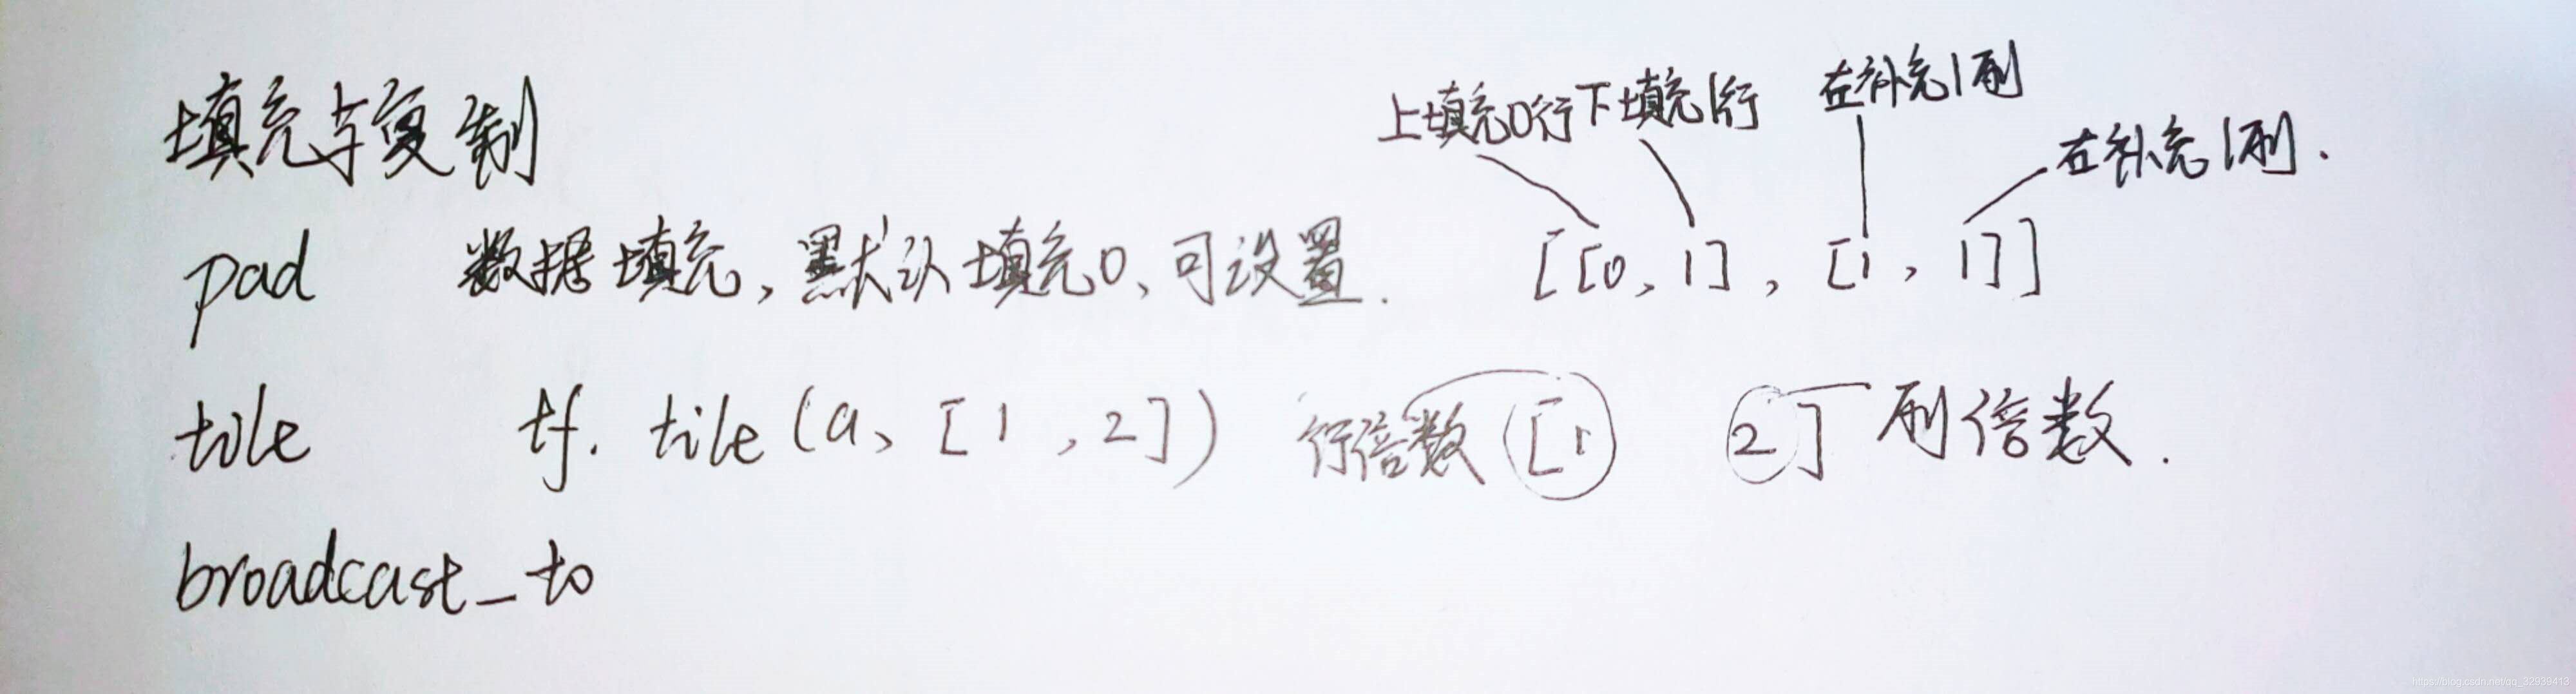 填充与复制
上填充0行 下填充1行 左补充1列
右补充1列.
pad 数据填充,默认填充0、可设置. [[0,1],[1,1]]
tile tf.tile(a、[1,2]) 行倍数 [1 2] 列倍数.
broadcast_to
https://blog.csdn.net/qq_32939413